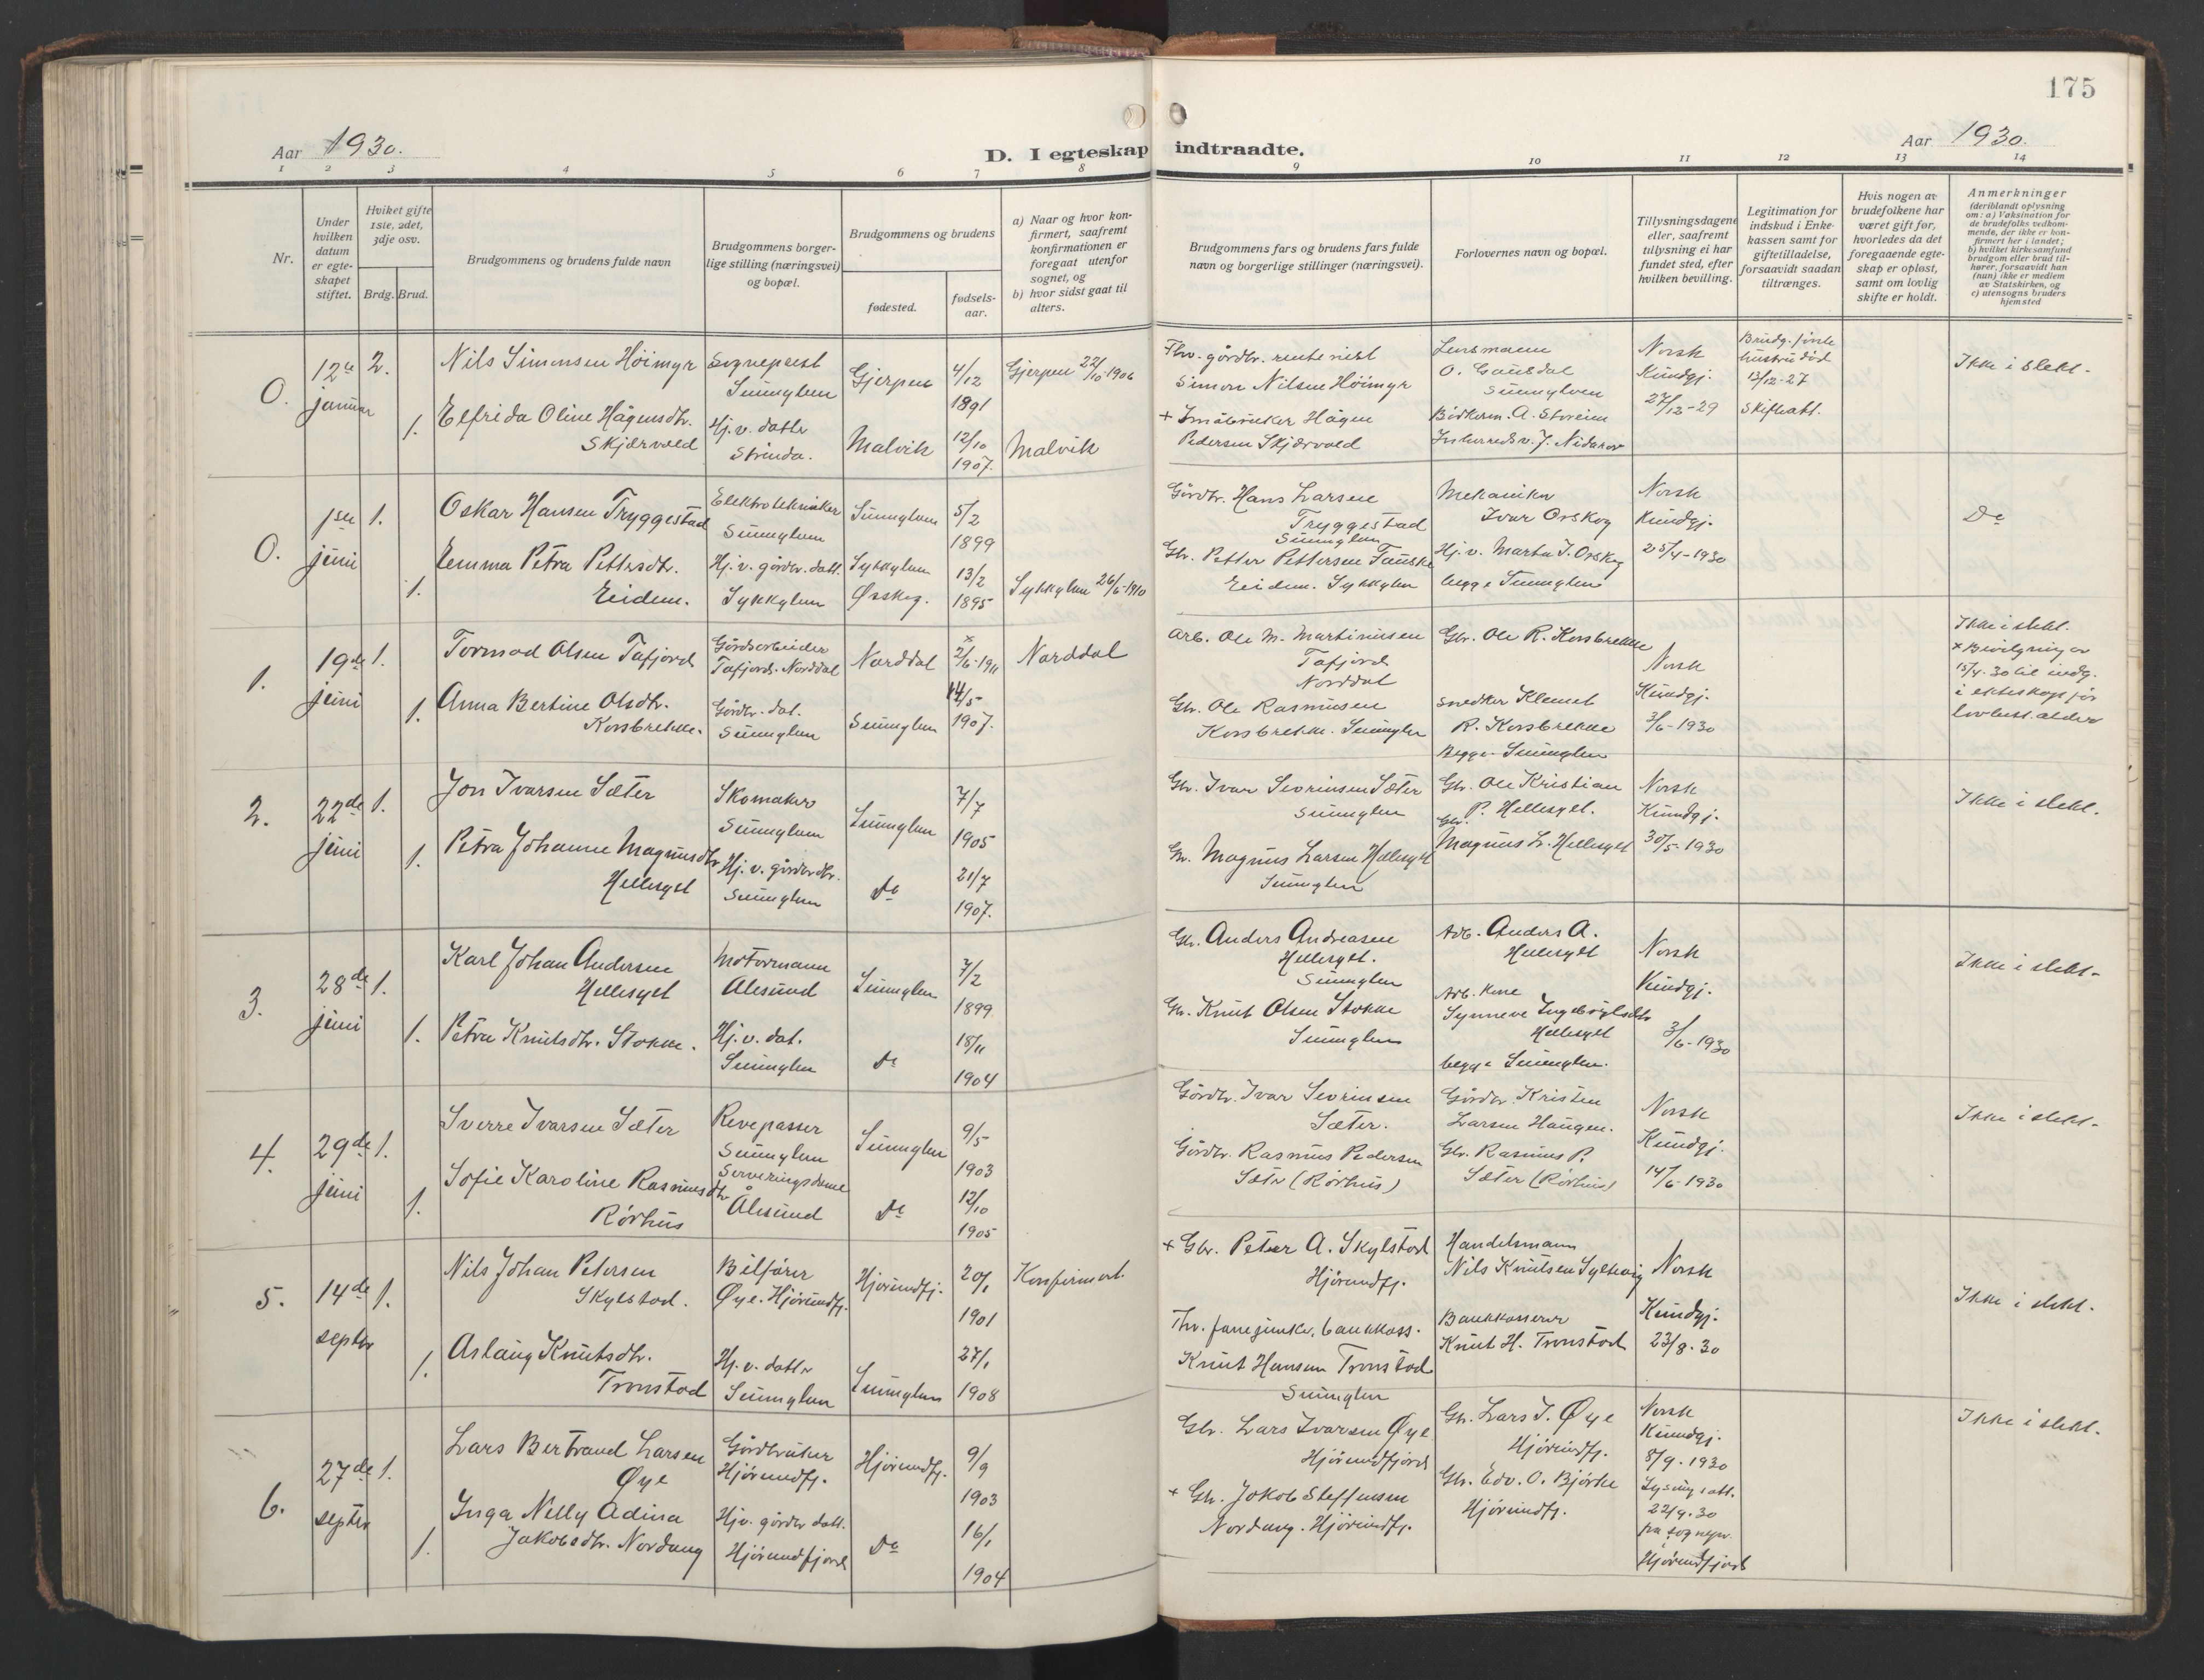 175
Aar 1930.
D. I egteskap indtraadte.
Aar 1930.
1 2 3 4 5 6 7 8 9 10 11 12 13 14
Nr.
Under hvilken datum er egteskapet stiftet.
Hviket gifte 1ste, 2det, 3dje osv.
Brdg. Brud.
Brudgommens og brudens fulde navn
Brudgommens borgerlige stilling (næringsvei) og bopæl.
Brudgommens og brudens
fødested.
fødselsaar.
a) Naar og hvor konfirmert, saafremt konfirmationen er foregaat utenfor sognet, og
b) hvor sidst gaat til alters.
Brudgommens fars og brudens fars fulde navn og borgerlige stillinger (næringsvei).
Forlovernes navn og bopæl.
Tillysningsdagene eller, saafremt tillysning ei har fundet sted, efter hvilken bevilling.
Legitimation for indskud i Enkekassen samt for giftetilladelse, forsaavidt saadan tiltrænges.
Hvis nogen av brudefolkene har været gift før, hvorledes da det foregaaende egteskap er opløst, samt om lovlig skifte er holdt.
Anmerkninger
(deriblandt oplysning om: a) Vaksination for de brudefolks vedkommende, der ikke er konfirmert her i landet; b) hvilket kirkesamfund brudgom eller brud tilhører, forsaavidt han (hun) ikke er medlem av Statskirken, og c) utensogns bruders hjemsted
0. 12te januar 2.
Nils Simonsen Höimyr
Sogneprest
Sunnylven
Gjerpen
4/12 1891
Gjerpen 22/10 1906
Fhv. gårdbr. rentenist
Simon Nilsen Höimyr
Lensmann
O. Gausdal
Sunnylven
Norsk
Kundgj.
27/12-29
Brudg. første
hustru død
13/12-27
Skifteatt.
Ikke i slekt.
1. Elfrida Oline Hågensdtr.
Skjærvold
Hj. v. datter
Strinda.
Malvik
12/10 1907.
Malvik
+ Småbruker Hågen
Pedersen Skjærvold
0. 1ste juni 1.
Oskar Hansen Tryggestad
Elektrotekniker
Sunnylven
Sunnylven
5/2 1899
Gårdbr. Hans Larsen
Tryggestad
Sunnylven
Mekaniker
Ivar Orskog
Norsk
Kundgj.
25/4-1930
Do
1. Emma Petra Pettersdtr.
Eidem.
Hj. v. gårdbr. datt.
Sykkylven
Sykkylven
Ørskog.
13/2 1895
Sykkylven 26/6-1910
Gbr. Petter Pettersen Fauske
Eidem. Sykkylven
Hj. v. Marta J. Orskog
begge Sunnylven
1. 19de juni 1.
Tormod Olsen Tafjord
Gårdsarbeider
Tafjord. Norddal
Norddal
x 2/6-1911
Norddal
Arb. Ole M. Martinusen
Tafjord
Norddal
Gbr. Ole R. Korsbrekke
Norsk
Kundgj.
3/6-1930
Ikke i slekt.
x Bevilgning av
15/4.30 til indg.
i ekteskap før
lovbest. alder
1. Anna Bertine Olsdtr.
Korsbrekke.
Gårdbr. dat.
Sunnylven
Sunnylven
14/5 1907.
Gbr. Ole Rasmusen
Korsbrekke. Sunnylven
Snedker Klemet
R. Korsbrekke
Begge Sunnylven
2. 22de juni 1.
Jon Ivarsen Sæter
Skomaker
Sunnylven
Sunnylven
7/7 1905
Gbr. Ivar Sevrinsen Sæter
Sunnylven
Gbr. Ole Kristian
P. Hellesylt.
Norsk
Kundgj.
30/5-1930
Ikke i slekt.
1. Petra Johanne Magnusdtr
Hellesylt
Hj. v. gårdbr. dtr.
Sunnylven
Do
21/7 1907.
Gbr. Magnus Larsen Hellesylt
Sunnylven
Gbr. Magnus L. Hellesylt
3. 28de juni 1.
Karl Johan Andersen
Hellesylt
Motormann
Ålesund
Sunnylven
7/2 1899
Gbr. Anders Andreasen
Hellesylt.
Sunnylven
Arb. Anders A.
Hellesylt
Norsk
Kundgj.
3/6-1930
Ikke i slekt.
1. Petra Knutsdtr. Stokke.
Hj. v. dat.
Sunnylven
Do
18/11 1904
Gbr. Knut Olsen Stokke
Sunnylven
Arb. kone
Synneve
Hellesylt
begge Sunnylven.
4. 29de juni 1.
Sverre Ivarsen Sæter
Revepasser
Sunnylven
Sunnylven
9/5 1903
Gårdbr. Ivar Sevrinsen
Sæter.
Gårdbr. Kristen
Larsen Haugen.
Norsk
Kundgj.
14/6-1930
Ikke i slekt.
1. Sofie Karoline Rasmusdtr
Rørhus
Serveringsdame
Ålesund
Do
12/10 1905
Gårdbr. Rasmus Pedersen
Sæter (Rørhus)
Gbr. Rasmus P.
Sæter (Rørhus)
5. 14de septbr 1.
Nils Johan Petersen
Skylstad.
Bilfører
Øye. Hjörundfj.
Hjörundfj.
20/1 1901
Konfirmert.
+ Gbr. Peter A. Skylstad
Hjörundfj.
Handelsmann
Nils Knutsen Syltevig
Norsk
Kundgj.
23/8-30
Ikke i slekt.
1. Aslaug Knutsdtr.
Tronstad
Hj. v. datter
Sunnylven
Sunnylven
27/1 1908
Fhv. fanejunker, bankkass.
Knut Hansen Tronstad
Sunnylven
Bankkasserer
Knut H. Tronstad
6. 27de septbr 1.
Lars Bertrand Larsen
Øye
Gårdbruker
Hjörundfj.
Hjörundfj.
9/9 1903
Gbr. Lars Ivarsen Øye
Hjörundfjord
Gbr. Lars I. Øye
Hjörundfj.
Norsk
Kundgj.
8/9-1930
Lysing satt.
22/9.30
på sognepr.
Hjörundfjord
Ikke i slekt.
1. Inga Nelly Adina
Jakobsdtr. Nordang
Hj. v. gårdbr datt.
Hjörundfjord
Do
16/1 1904
+ Gbr. Jakob Steffensen
Nordang. Hjörundfj.
Gbr. Edv. O. Bjørke
Hjörundfj.